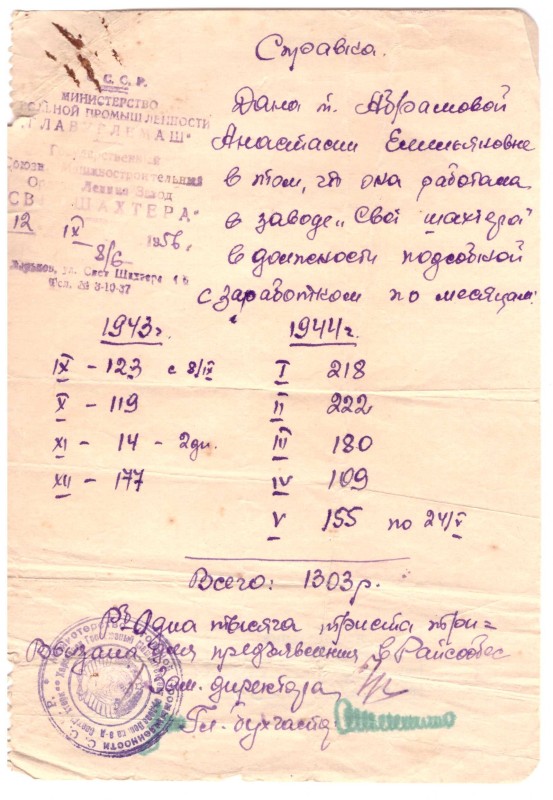 Справка.
С. С. Р.
МИНИСТЕРСТВО
УГОЛЬНОЙ ПРОМЫШЛЕННОСТИ
"ГЛАВУГЛЕМАШ"
Государственный
Машиностроительный
Ленина Завод
ШАХТЕРА"
12 IX 1956 г.
8/6
Харьков, ул. Свет Шахтера 4/6
Тел. № 3-10-37
Дана т. Абрамовой
Анастасии Емельяновне
в том, что она работала
в заводе „Свет шахтера"
в должности подсобной
с заработком по месяцам:
1943 г. 1944 г.
IX - 123 с 8/IX I 218
X - 119 II 222
XI - 14 - 2 дн. III 180
XII - 177 IV 109
V 155 по 24/V
Всего: 1303 р.
Одна тысяча триста три =
Выдана для предъявления в Райсобес
директора
Гл. бухгалтер